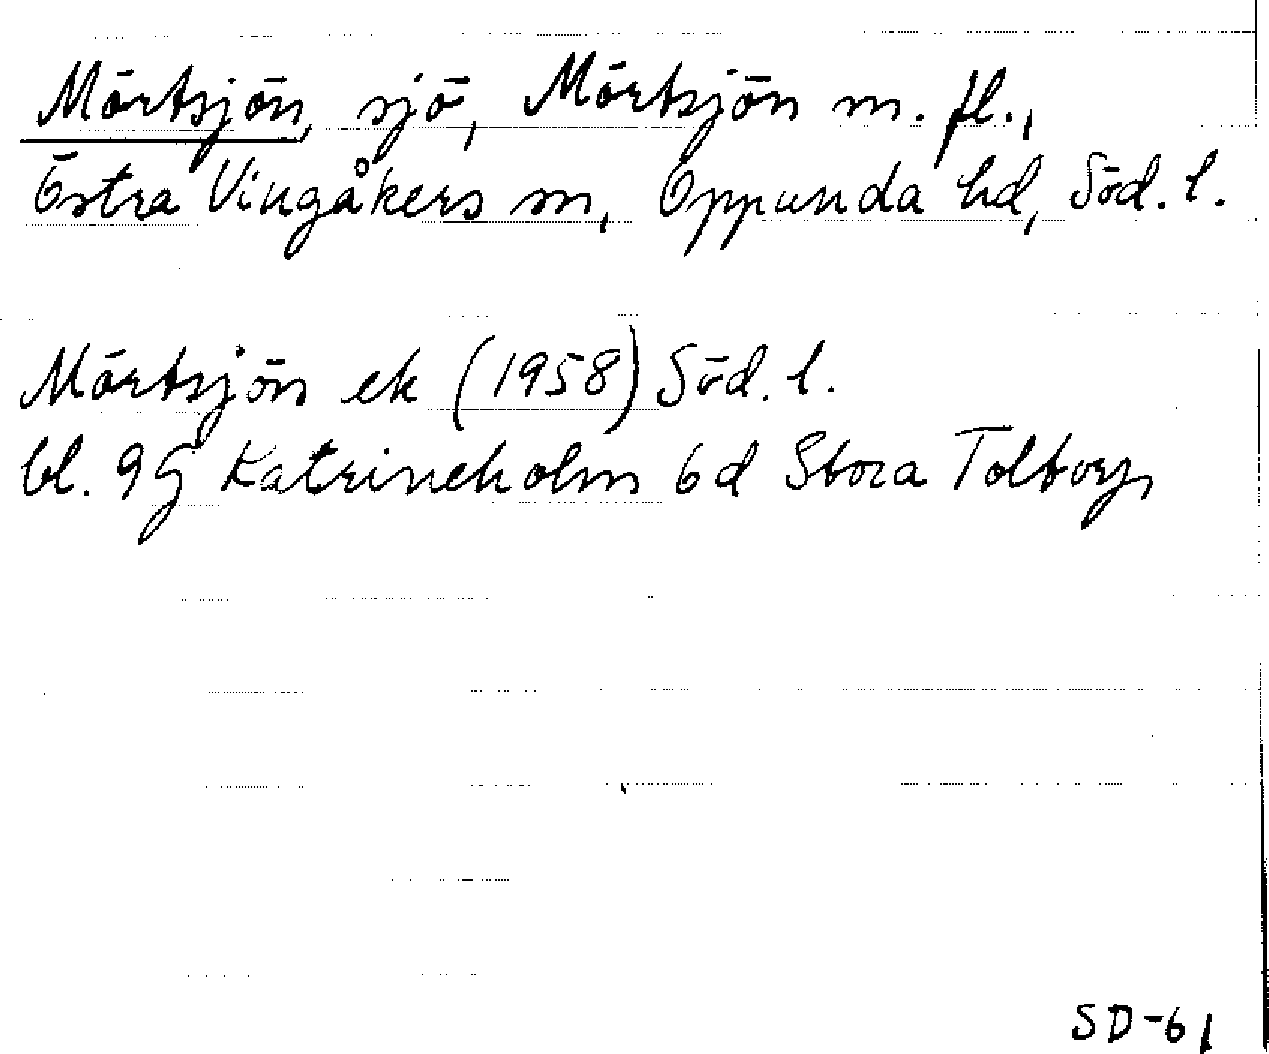 Mörtsjön, sjö, Mörtsjön m. fl.,
Östra Vingåkers sn, Oppunda hd, Söd. l.
Mörtsjön ek (1958) Söd. l.
bl. 9G Katrineholm 6d Stora Toltorp
SD-61